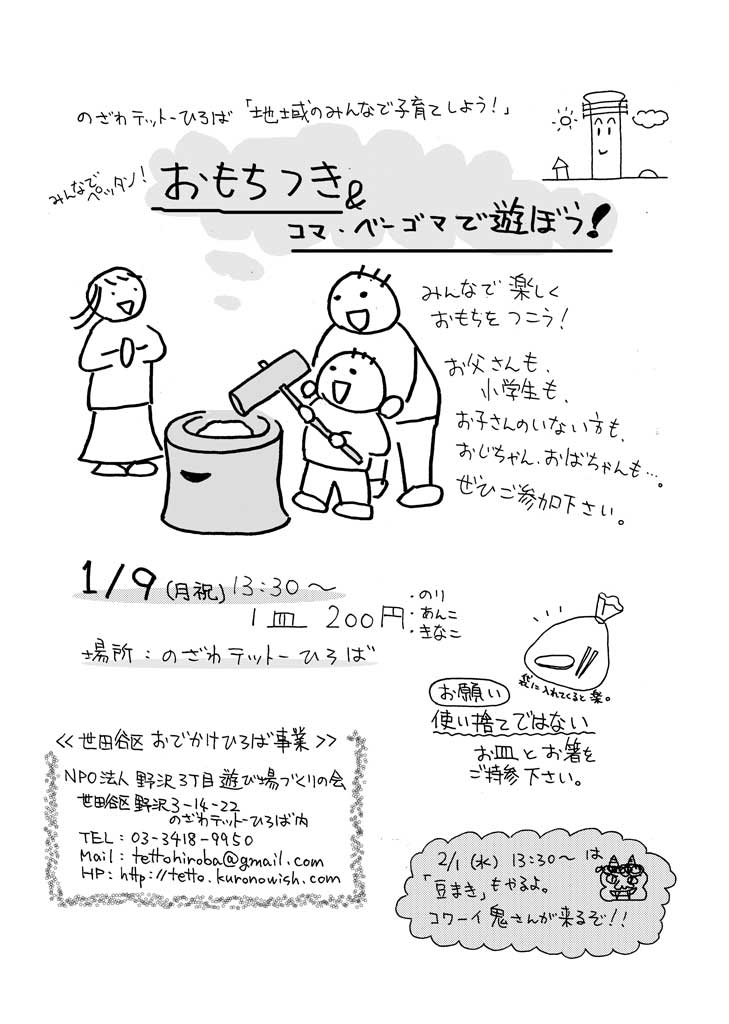 のざわテットーひろば 「地域のみんなで子育てしよう！」
みんなで
ペッタン！
おもちつき&
コマ・ベーゴマで遊ぼう！
みんなで楽しく
おもちをつこう！
お父さんも、
小学生も、
お子さんのいない方も、
おじちゃん、おばちゃんも…。
ぜひご参加下さい。
1/9(月祝) 13:30〜
1皿 200円
・のり
・あんこ
・きなこ
場所：のざわテットーひろば
袋に入れてくると楽。
お願い
使い捨てではない
お皿とお箸を
ご持参下さい。
≪世田谷区 おでかけひろば事業≫
NPO法人 野沢3丁目遊び場づくりの会
世田谷区野沢3-14-22
のざわテットーひろば内
TEL：03-3418-9950
Mail：tettohiroba@gmail.com
HP：http://tetto.kuronowish.com
2/1(水) 13:30〜は
「豆まき」もやるよ。
コワーイ鬼さんが来るぞ！！